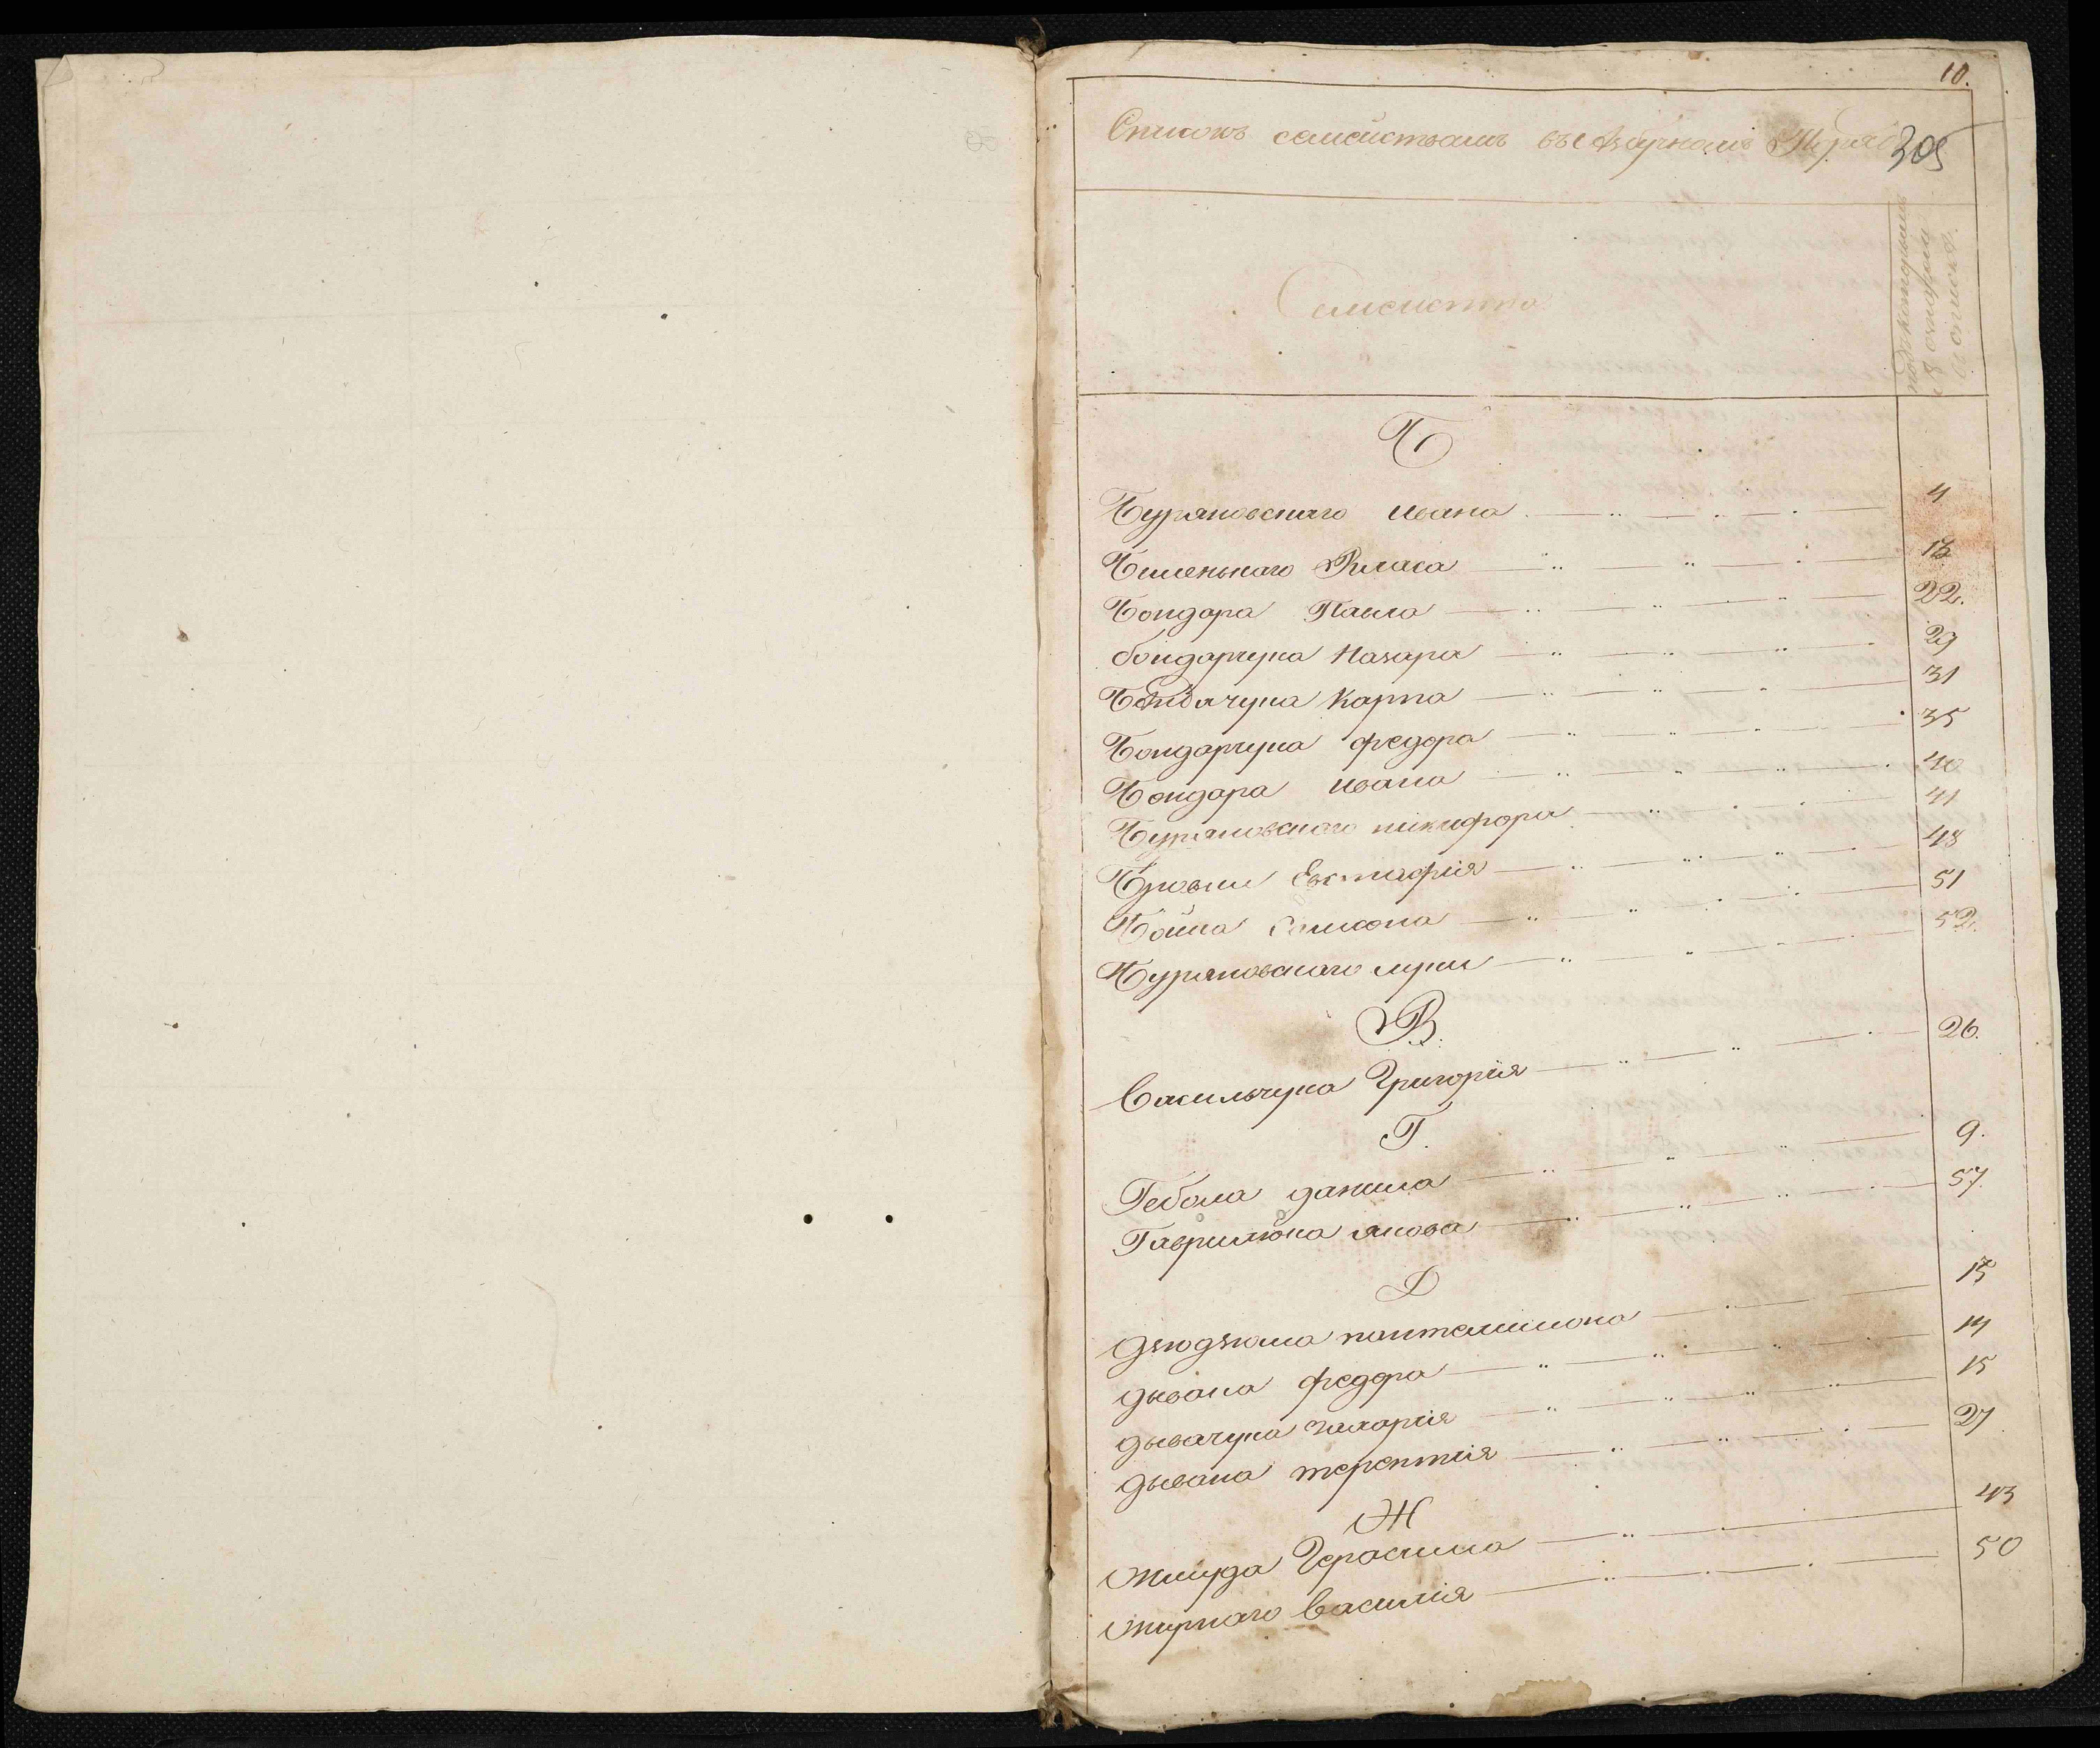 10.
Списокъ семействамъ въ
305
Семейства
подъ которымъ
№
Б
Буряновскаго Ивана 4
Биленькаго Власа 13
Бондара Павла 22.
бондарчука Назара 29
Карпа 31
Бондарчука федора 35
Бондара Ивана 40
Буряновскаго никифора 41
Евстафія 48
Бойка Самсона 51
Буряновскаго луки 52.
В.
Васильчука Григорія 26.
Г.
Гебала данила 9.
Гаврилюка якова 57.
Д
дзюдзюка пантелимона 13
дывана федора 14
дывачука захарія 15
дывана терентія 27
Ж
Жигуда Герасима 43
Жирнаго Василія 50